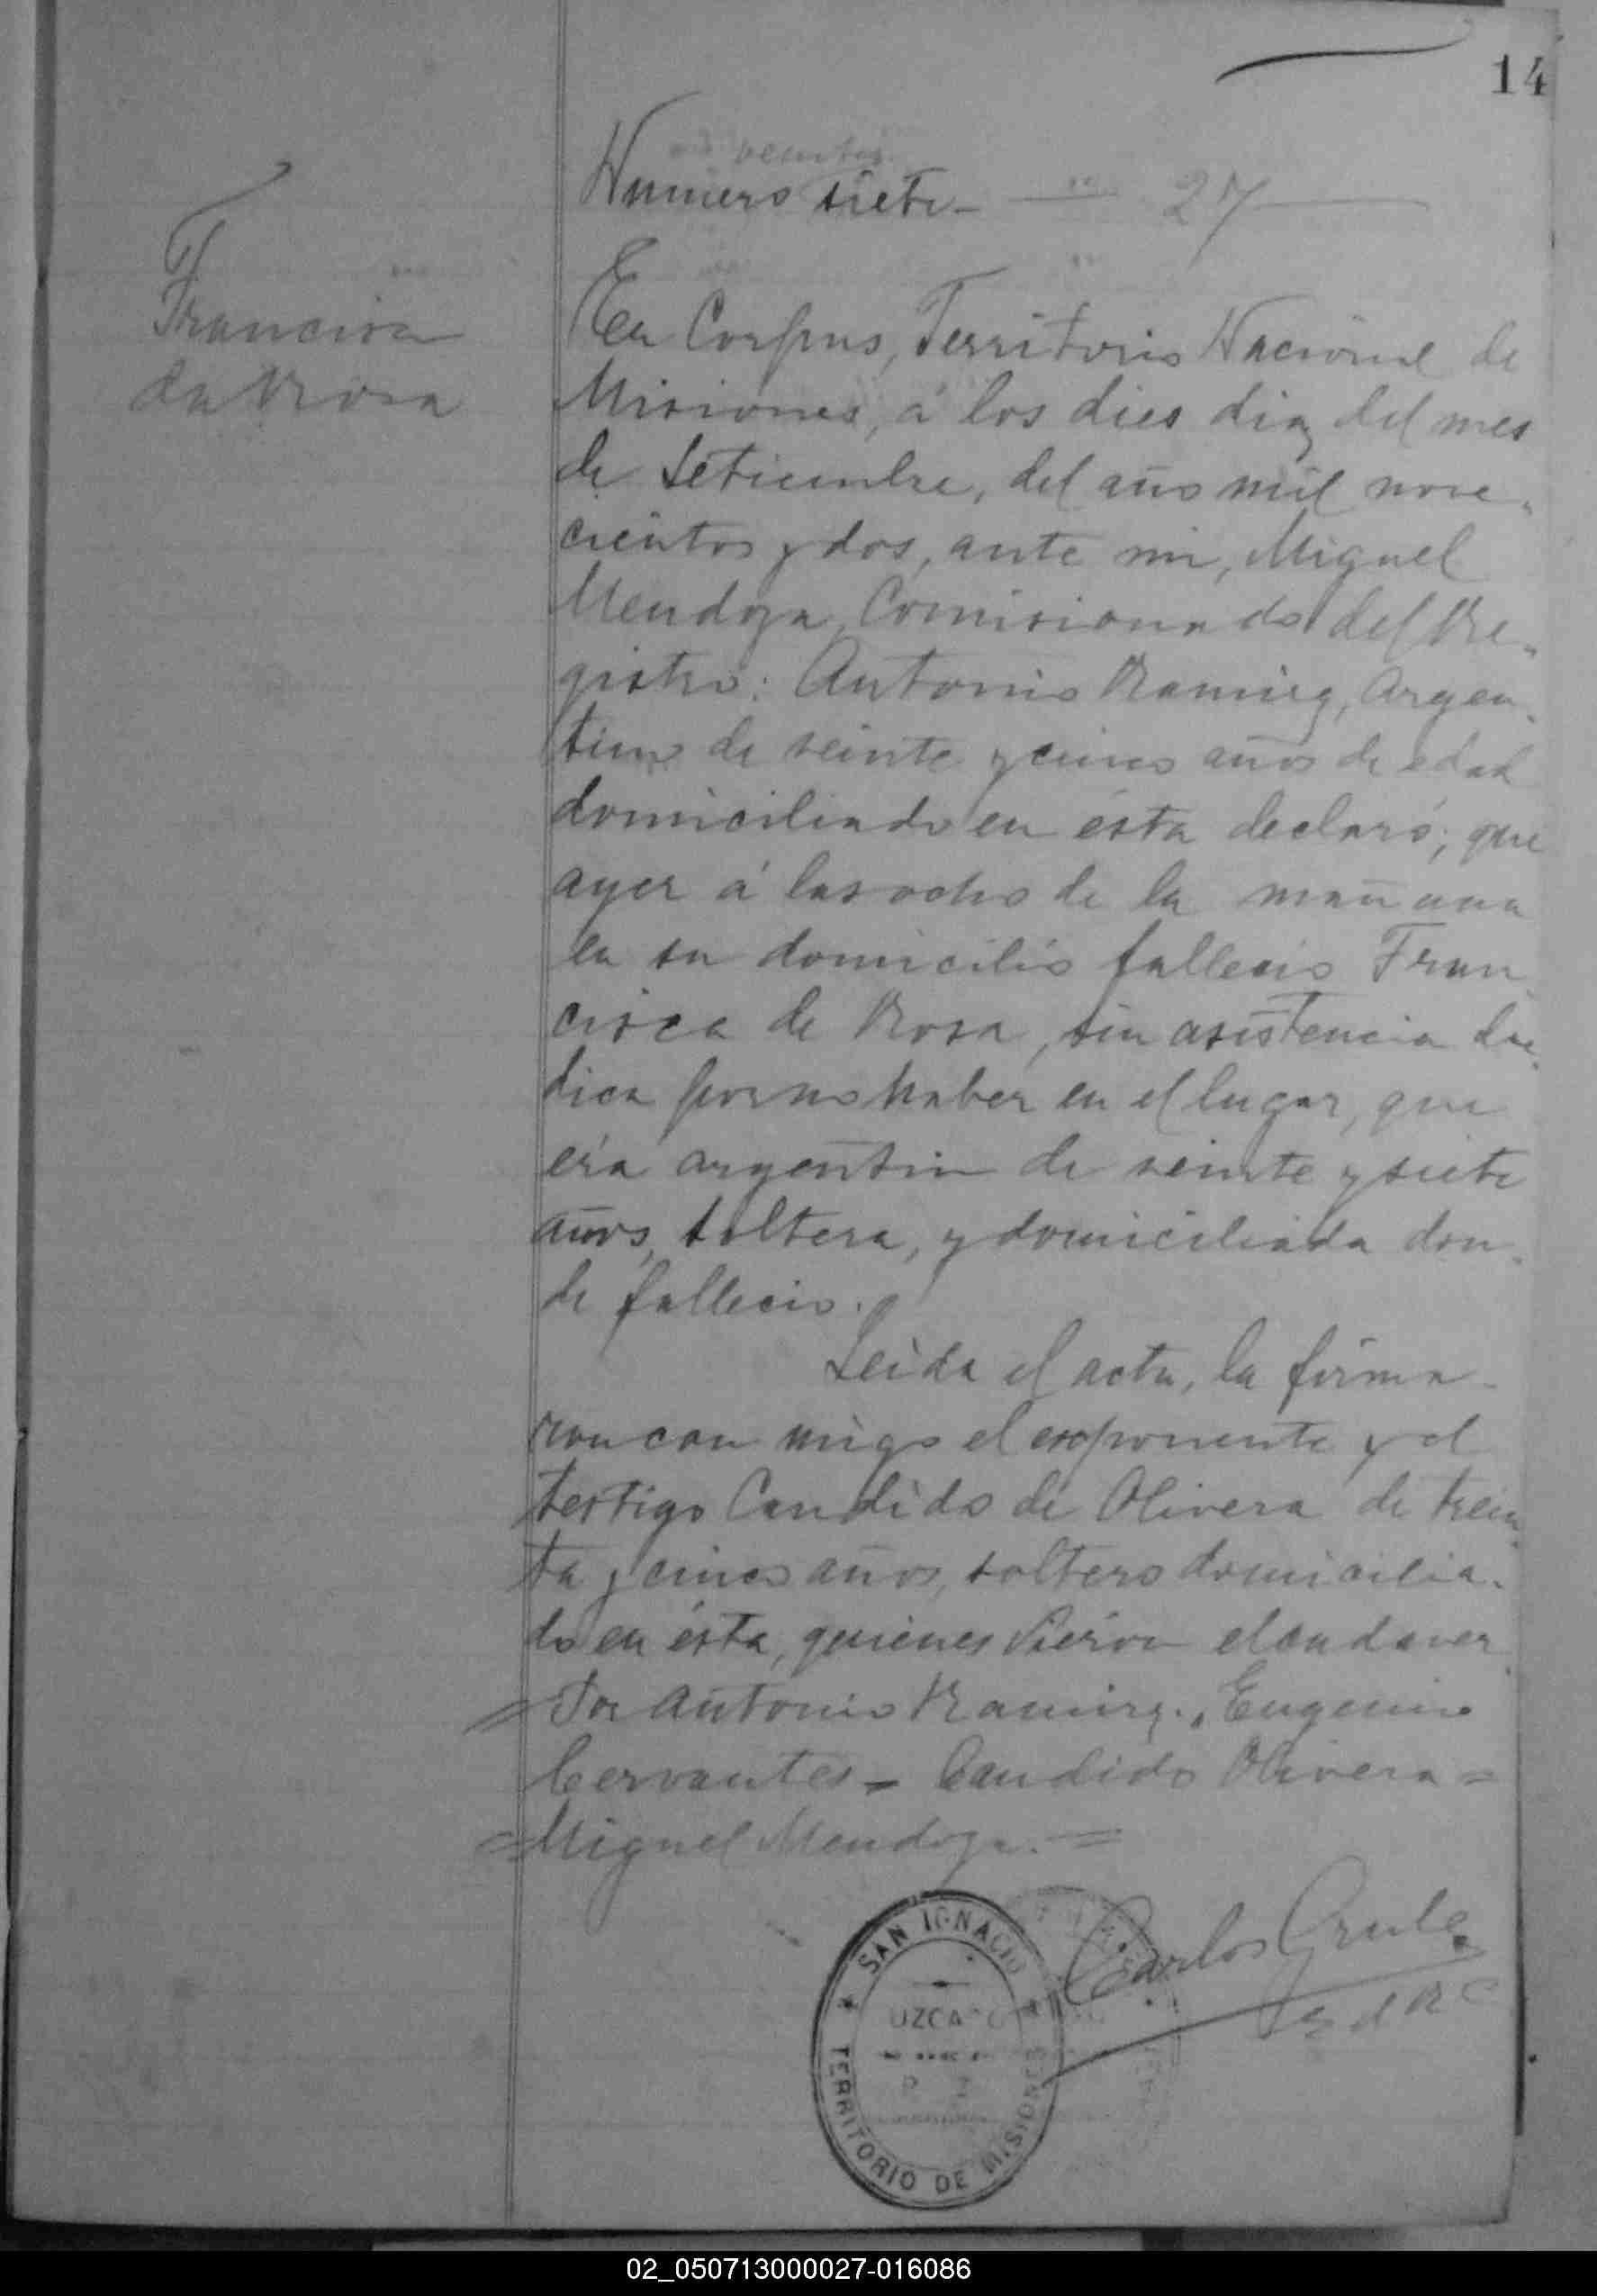 14
veinti
Numero siete — 27 —
Francisca
da Rosa
En Corpus, Territorio Nacional de
Misiones, á los dies dias del mes
de Setiembre, del año mil nove-
cientos y dos, ante mi, Miguel
Mendoza, Comisionado del Re-
gistro: Antonio Ramirez, Argen-
tino de veinte y cinco años de edad
domiciliado en ésta declaró; que
ayer á las ocho de la mañana
en su domicilio fallecio Fran-
cisca de Rosa, sin asistencia
dica por no haber en el lugar, que
era argentin de veinte y siete
años, soltera, y domiciliada don-
de fallecio.
Leida el acta, la firma-
ron con migo el exponente y el
testigo Candido de Olivera de trein-
ta y cinco años, soltero domicilia-
do en ésta, quienes viéron el cadaver
= Por Antonio Ramirez., Eugenio
Cervantes = Candido Olivera =
= Miguel Mendoza. =
Carlos
SAN IGNACIO
TERRITORIO DE MISIONES
02_050713000027-016086